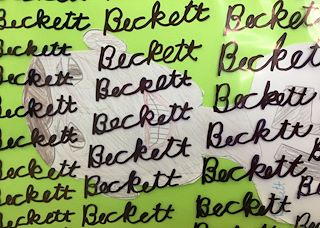 Beckett Beckett Beckett
Beckett Beckett Beckett
Beckett Beckett Beckett
Beckett Beckett Beckett
Beckett Beckett Beckett
Beckett Beckett Beckett
Beckett Beckett Beckett
Beckett Beckett Beckett